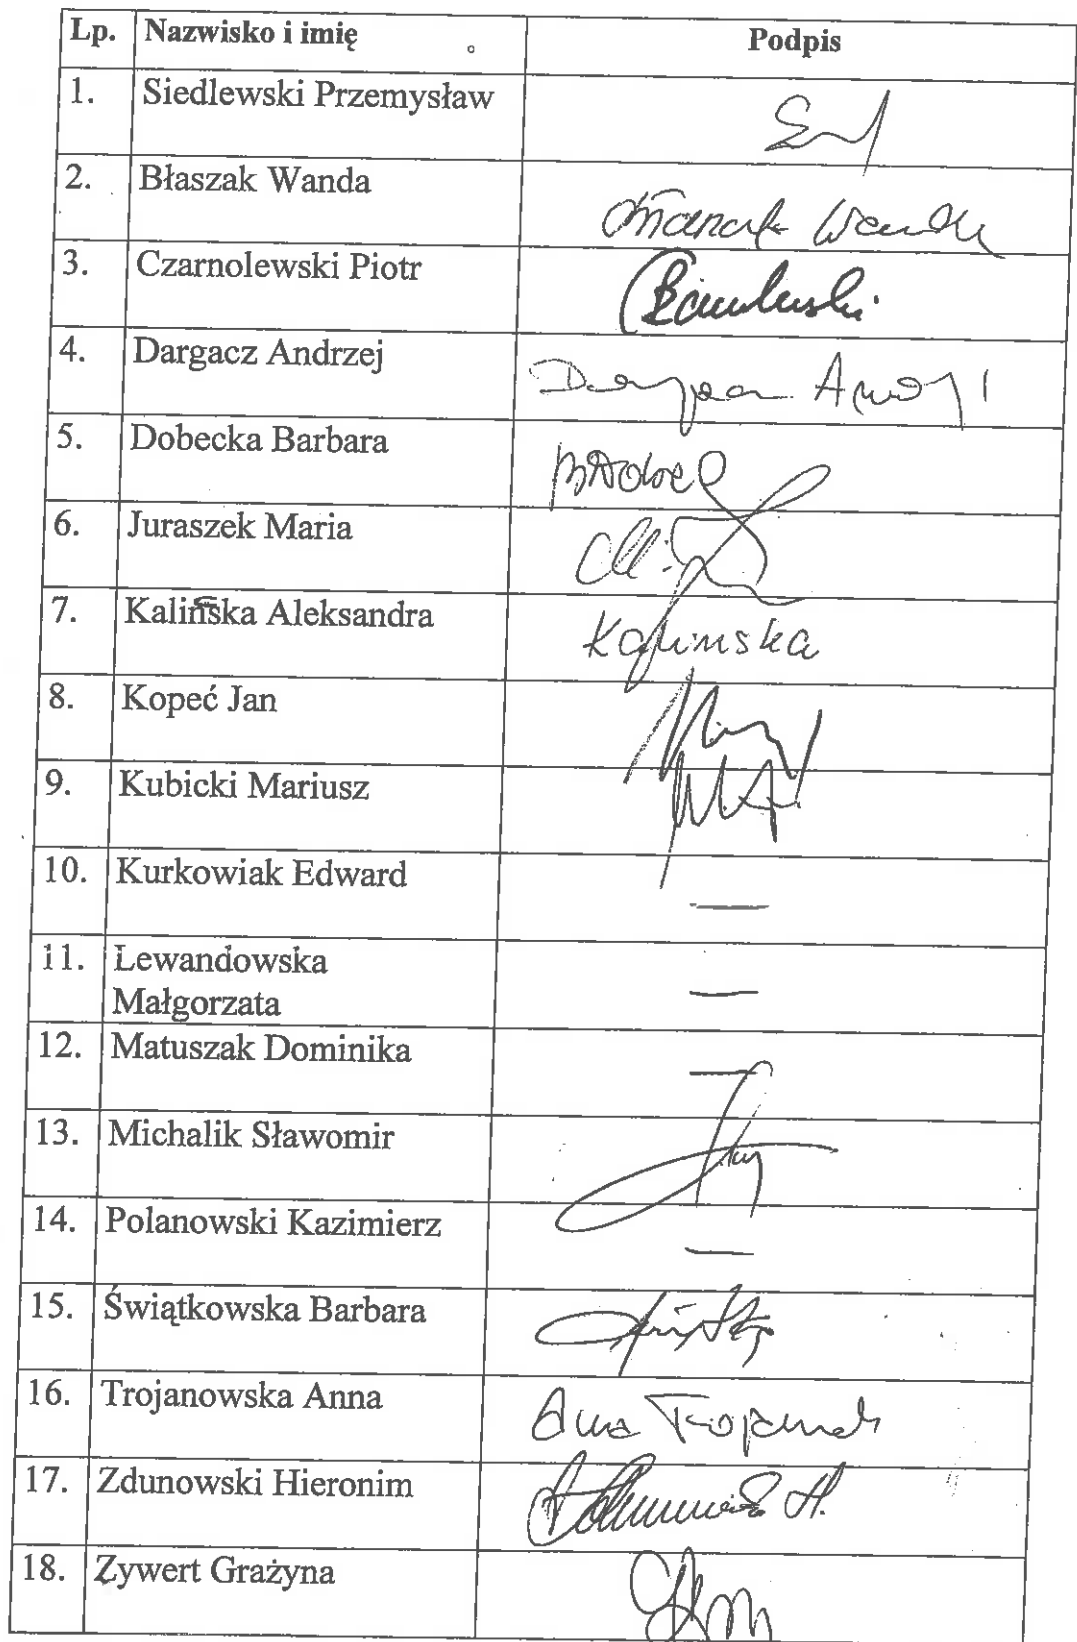 Lp. Nazwisko i imię Podpis
1. Siedlewski Przemysław
2. Błaszak Wanda
3. Czarnolewski Piotr
4. Dargacz Andrzej
5. Dobecka Barbara
6. Juraszek Maria
7. Kalińska Aleksandra Kalinska
8. Kopeć Jan
9. Kubicki Mariusz
10. Kurkowiak Edward —
11. Lewandowska
Małgorzata —
12. Matuszak Dominika —
13. Michalik Sławomir
14. Polanowski Kazimierz —
15. Świątkowska Barbara
16. Trojanowska Anna
17. Zdunowski Hieronim
18. Zywert Grażyna